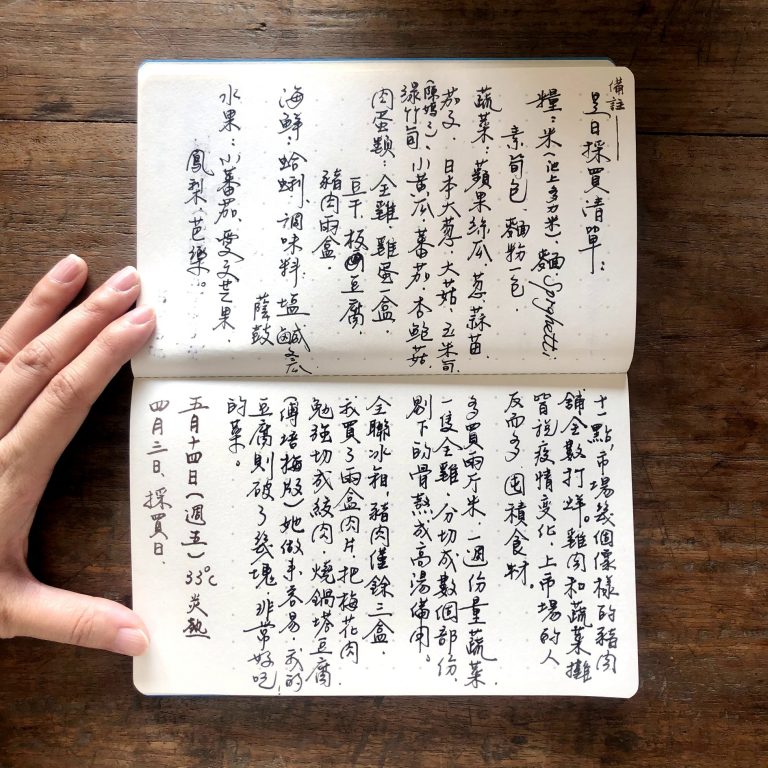 備註
是日採買清單:
糧:米(池上多力米)、麵 Spaghetti
素筍包、麵粉一包、
蔬菜 蘋果絲瓜、蔥、蒜苗、
茄子、日本大蔥、大菇、玉米筍
綠竹筍、小黃瓜、蕃茄、杏鮑菇
肉蛋類:全雞、雞蛋一盒、
豆干、板豆腐、
豬肉兩盒、
海鮮:蛤蜊、調味料:塩、鹹瓜
蔭鼓
水果:小蕃茄、愛文芒果、
鳳梨、芭樂。
十一點,市場幾個像樣的豬肉
舖全數打烊。雞肉和蔬菜攤
皆說疫情變化,上市場的人
反而多,囤積食材。
多買兩斤米,一週份量蔬菜,
一隻全雞,分切成數個部份,
剔下的骨熬成高湯備用。
全聯冰箱,豬肉僅餘三盒,
我買了兩盒肉片,把梅花肉
勉強切成絞肉,燒鍋塔豆腐
(傅培梅版)她做來容易,我的
豆腐則破了幾塊,非常好吃
的菜。
五月十四日(週五)33°C 炎熱
四月三日、採買日、